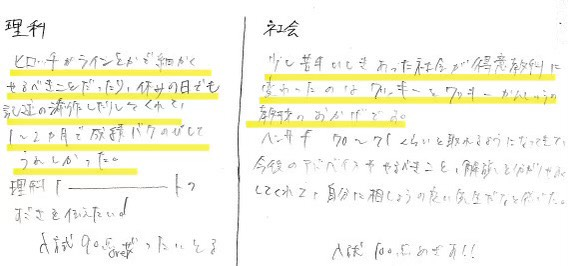 理科
ヒロッチがラインとかで細かく
やるべきことだったり、休みの日でも
記述の添削しだしてくれて、
1〜2ヵ月で成績バクのびして
うれしかった。
理科「 」の
すごさを伝えたい。
入試90点 ぜったいとる
社会
少し苦手いしきあった社会が得意教科に
変わったのは クッキーとワッキー かんしゅうの
教材のおかげです。
ヘンサチ 70〜71くらいと取れるようになってきて、
今後のアドバイスややるべきこと、解説も分かりやすく
してくれて、自分に相しょうの良い先生だなと感じた。
入試 100点めざす!!